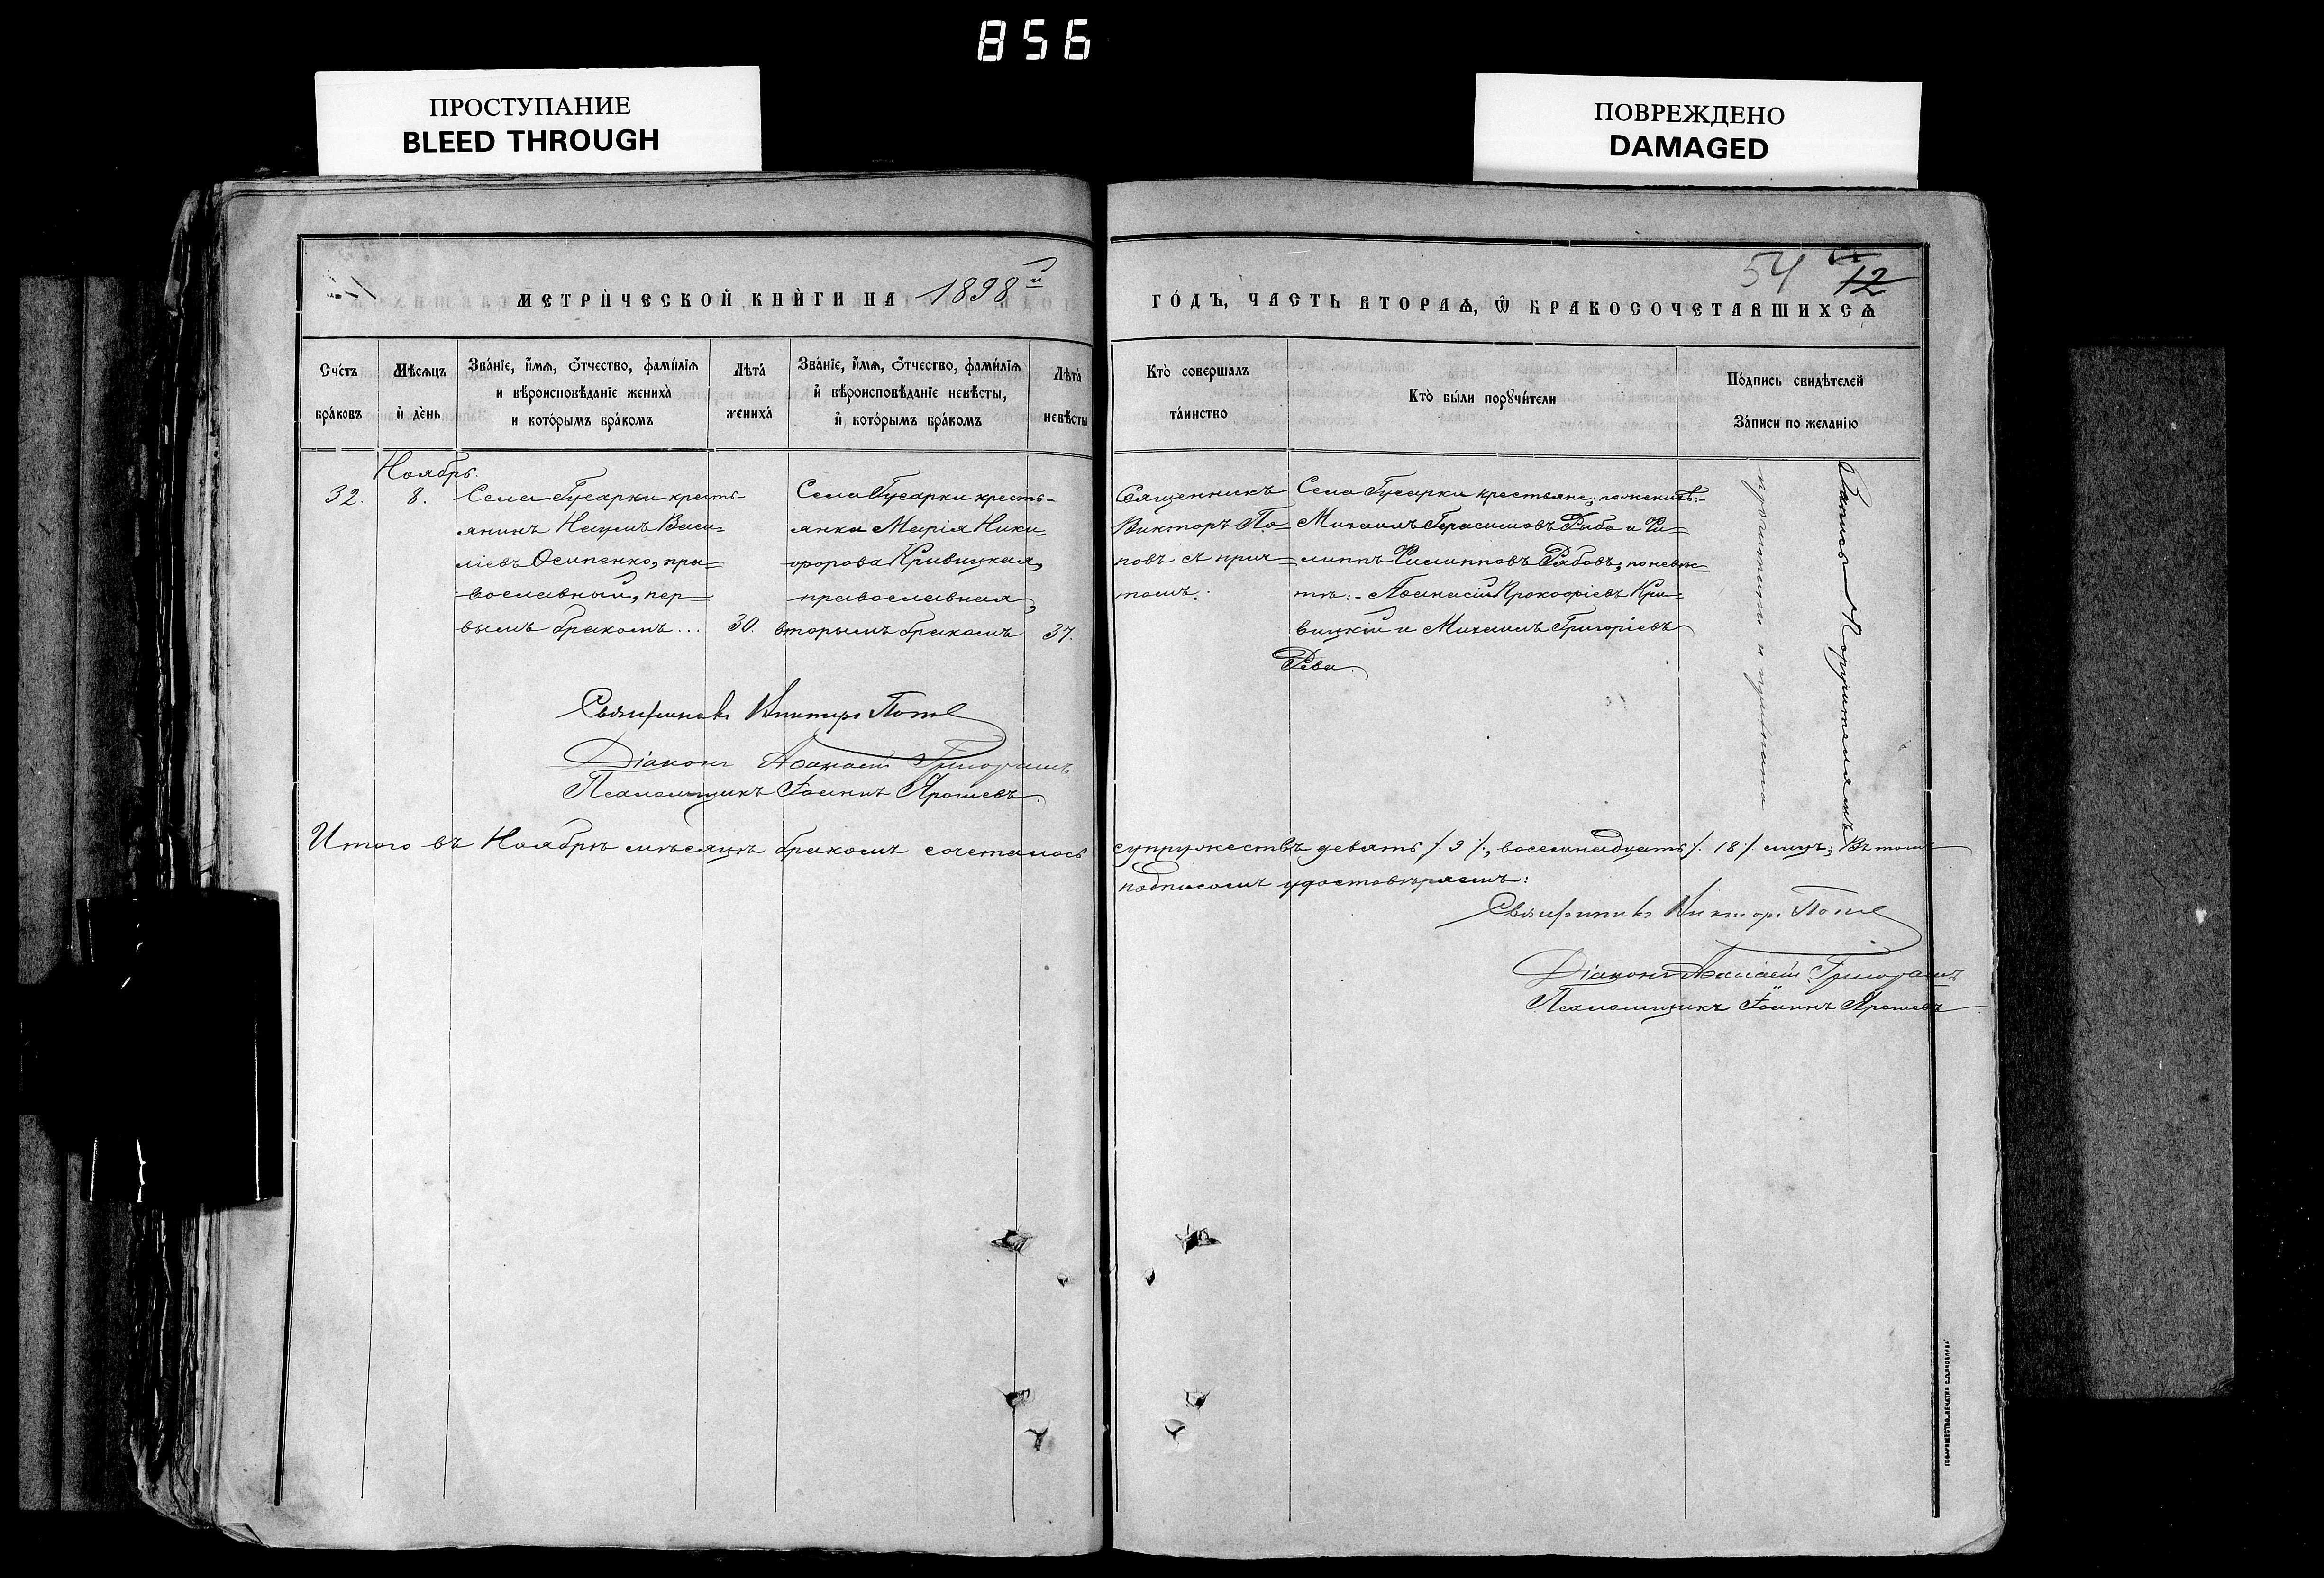 856
ПРОСТУПАНИЕ
BLEED THROUGH
ПОВРЕЖДЕНО
DAMAGED
МЕТРИ́ЧЕСКОЙ КНИ́ГИ НА 1898й
54 12
ГО́ДЪ, ЧАСТЬ ВТОРАѦ, Ѿ БРАКОСОЧЕТАВШИХСѦ
Сче́тъ
бра́ковъ
Мѣ́сѧцъ
и де́нь
Зва́нїе, и́мѧ, о́тчество, фами́лїѧ
и вѣроисповѣ́данїе жениха̀
и кото́рымъ бра́комъ
Лѣта̀
жениха̀
Зва́нїе, и́мѧ, о́тчество, фами́лїѧ
и вѣроисповѣ́данїе невѣ́сты,
и кото́рымъ бра́комъ
Лѣта̀
невѣ́сты
Кто̀ соверша́лъ
та́инство
Кто̀ бы́ли поручи́тели
По́дпись свидѣ́телей
За́писи по жела́нію
Ноябрь.
32.
8.
Села Гусарки кресть-
янинъ Наумъ Васи=
ліевъ Осипенко, пра=
вославный, пер=
вымъ бракомъ...
30.
Села Гусарки кресть-
янка Марія Ники=
форова Кривицкая,
православная,
вторымъ бракомъ
37.
Священникъ
Викторъ По=
повъ съ прич=
томъ.
Села Гусарки крестьяне; по женихѣ:-
Михаилъ Герасимовъ Рыба и Фи=
липпъ Филипповъ Рябовъ; по невѣс=
тѣ:- Аѳанасій Прокофіевъ Кри=
вицкій и Михаилъ Григоріевъ
Рева.
Запись поручителямъ
прочитана и
Священникъ Викторъ Поповъ
Діаконъ Аѳанасій Григорашъ
Псаломщикъ Іоаннъ Ярошевъ.
Итого въ Ноябрѣ мѣсяцѣ бракомъ сочеталось супружествъ девять /. 9 /., восемнадцать /. 18 /. лицъ; Въ томъ
подписомъ удостовѣряемъ:
Священникъ Викторъ Поповъ
Діаконъ Аѳанасій Григорашъ
Псаломщикъ Іоаннъ Ярошевъ